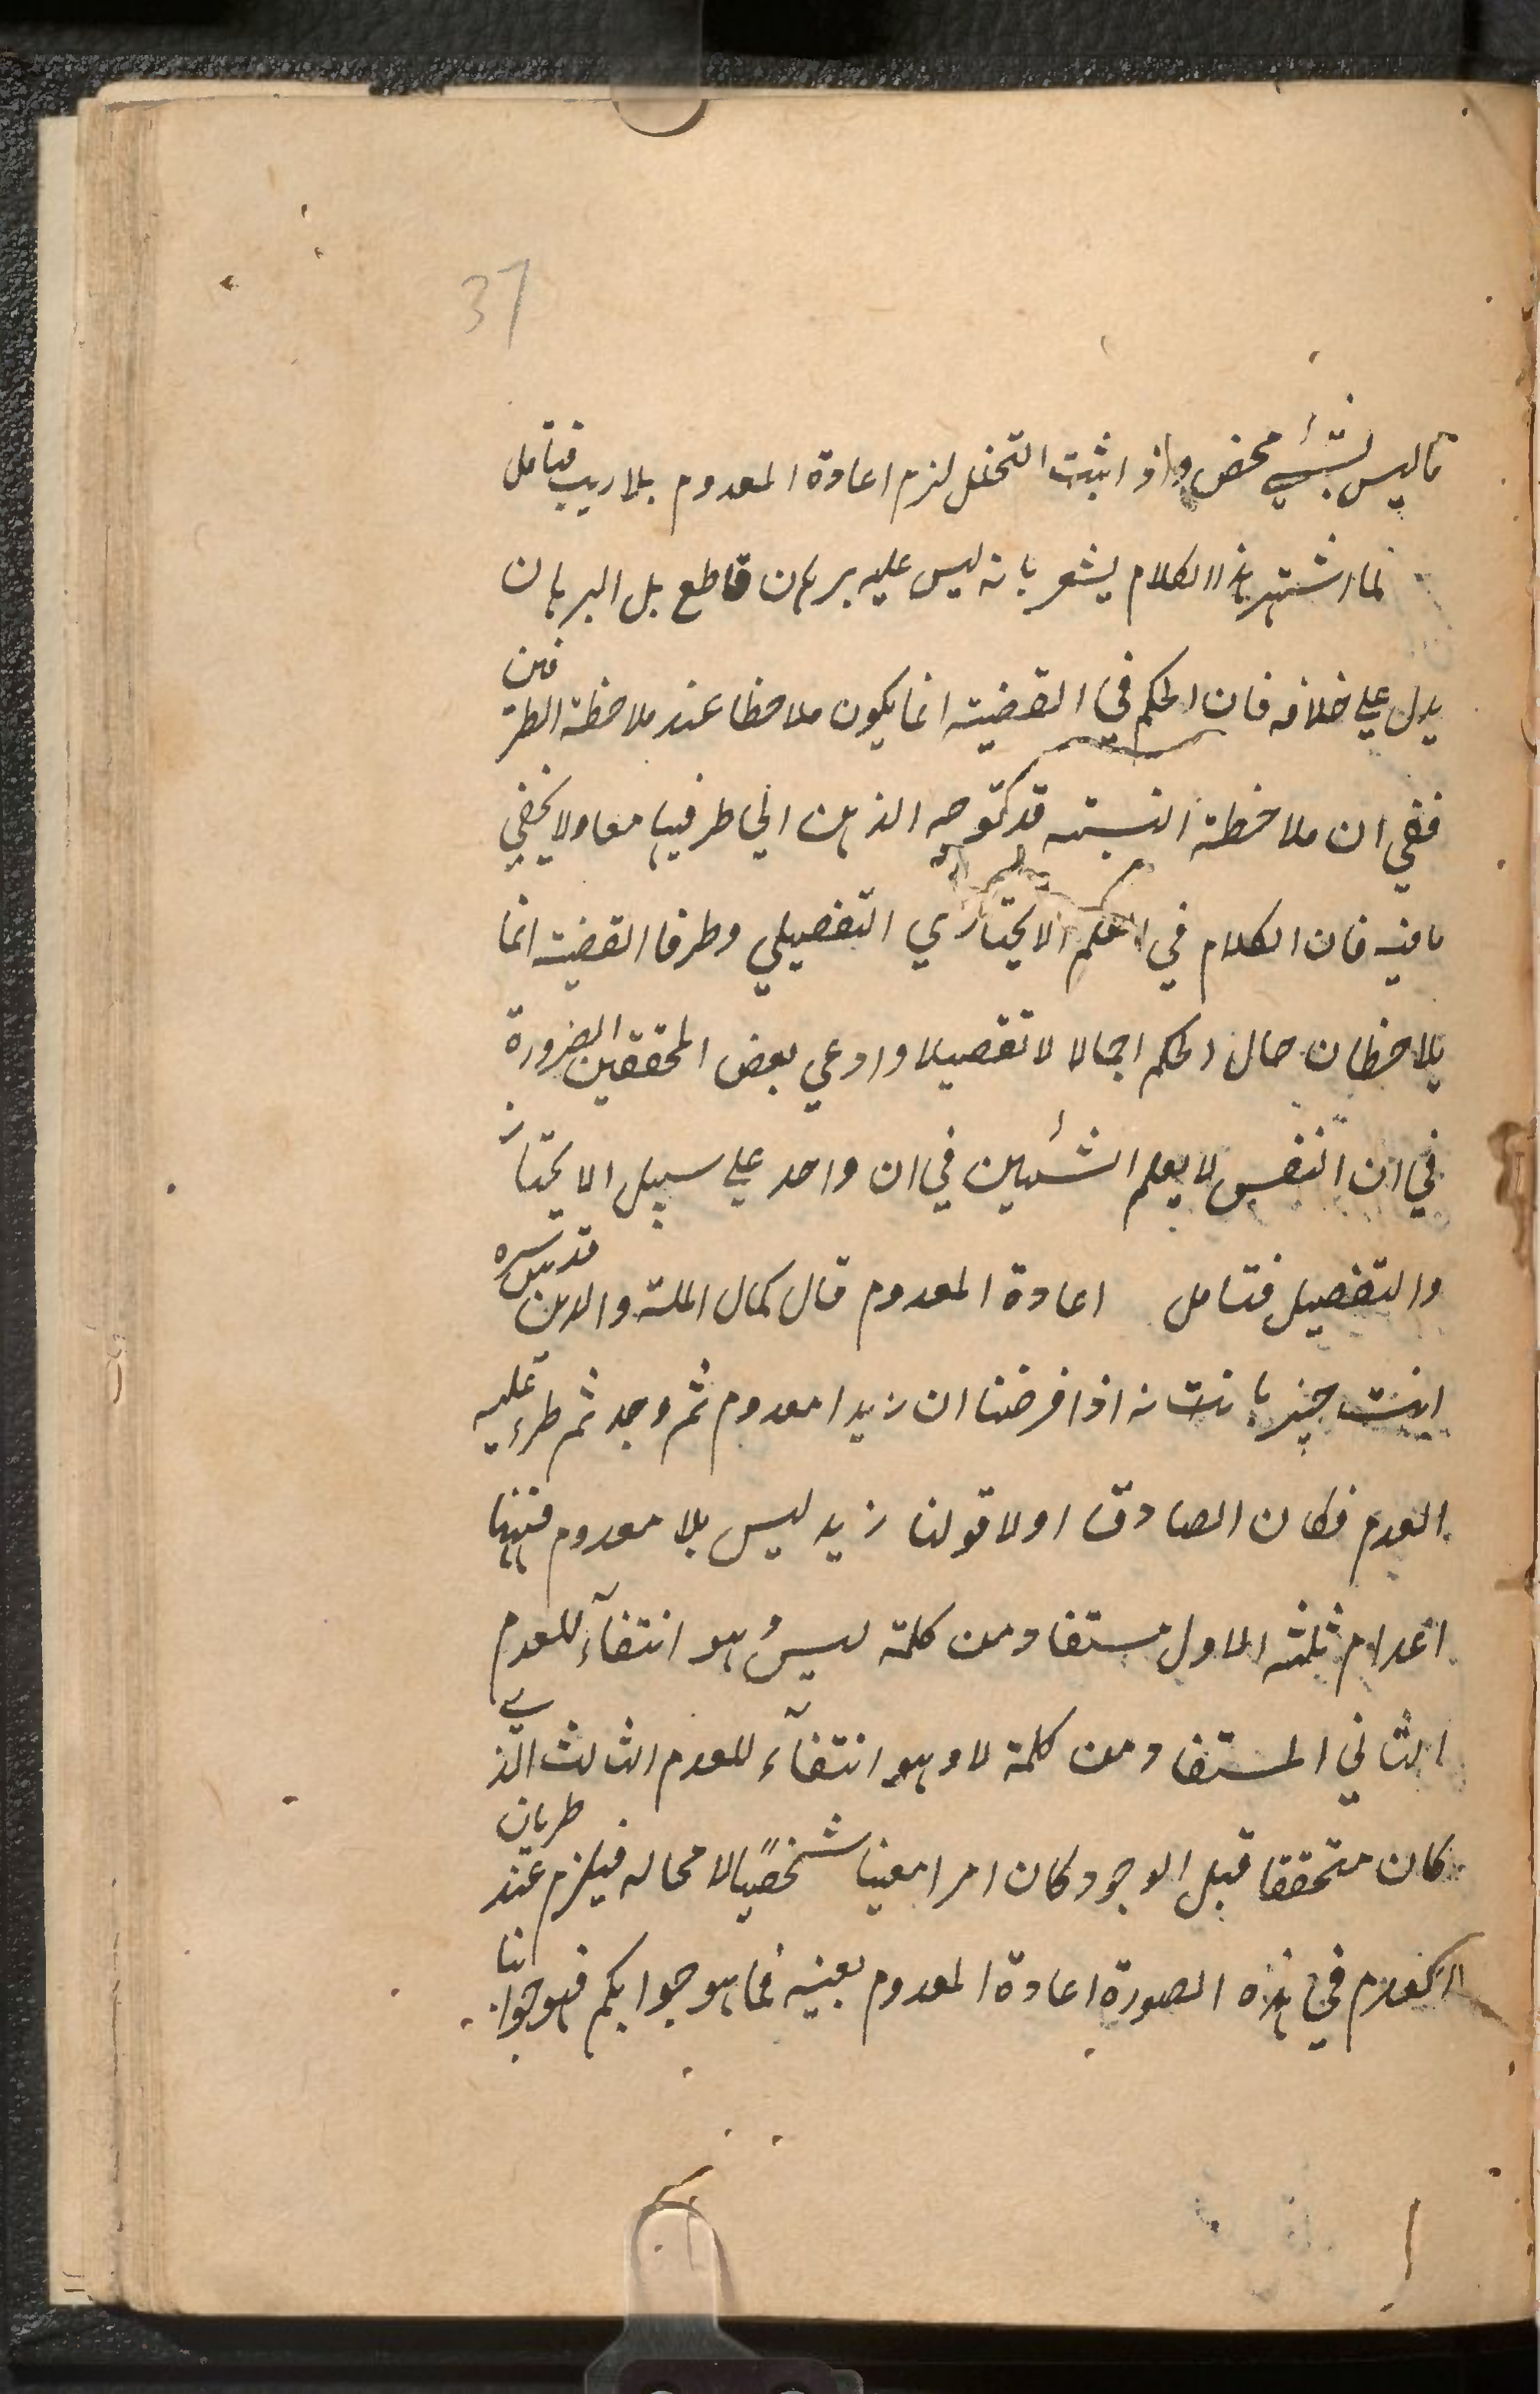 37
ما ليس بشيء محض واذا ثبت التخلل لزم اعادة المعدوم بلا ريب فتأمل
لما اشتهر هذا الكلام يشعر بانه ليس عليه برهان قاطع بل البرهان
يدل علي خلافه فان الحكم في القضية انما يكون ملاحظا عند ملاحظة الطرفين
ففي ان ملاحظة النسبة قد يتوجه الذهن الي طرفيها معا ولا يخفي
ما فيه فان الكلام في العلم الامتيازي التفصيلي وطرفا القضية انما
يلاحظان حال الحكم اجمالا لا تفصيلا وادعي بعض المحققين الضرورة
في ان النفس لا يعلم الشيئين في ان واحد علي سبيل الامتياز
والتفصيل فتامل اعادة المعدوم قال كمال الملة والدين قدس سره
انت خبير بانه اذا فرضنا ان زيدا معدوم ثم وجد ثم طرء عليه
العدم فكان الصادق اولا قولنا زيد ليس بلا معدوم فههنا
اعدام ثلثة الاول مستفاد من كلمة ليس وهو انتفاء للعدم
الثاني المستفاد من كلمة لا وهو انتفاء للعدم الثالث الذي
كان متحققا قبل الوجود كان امرا معينا شخصيا لا محاله فيلزم عند طريان
العدم في هذه الصورة اعادة المعدوم بعينه فما هو جوابكم فهو جوابنا